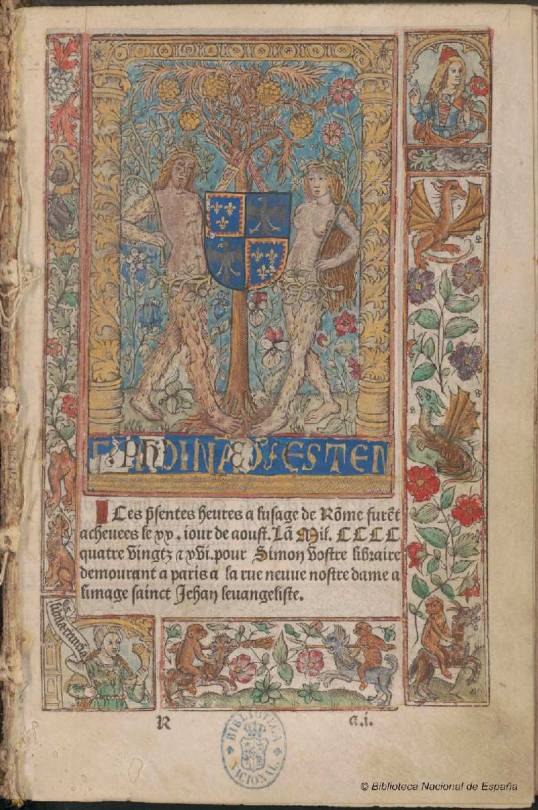 Ces p̃sentes heures a lusage de Rõme furẽt
acheuees le xx. iour de aoust. Lã Mil. CCCC
quatre vingtz ⁊ xvi. pour Simon vostre libraire
demourant a paris a la rue neuue nostre dame a
limage sainct Jehan leuangeliste.
R a.i.
BIBLIOTECA NACIONAL
© Biblioteca Nacional de España